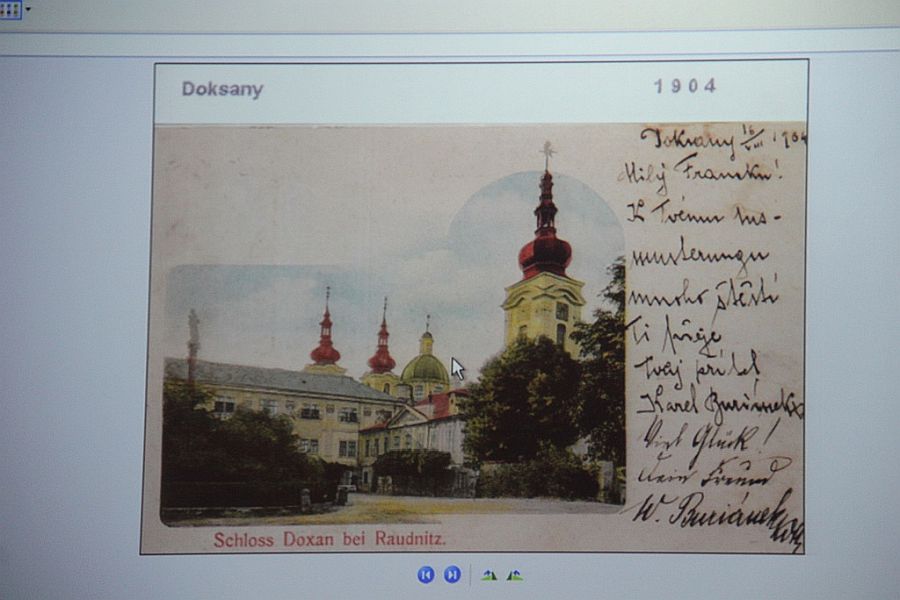 Doksany 1904
Doksany 16/VIII 1904
Milý Francku!
K Tvému
mnoho štěstí
Ti přeje
Tvůj přítel
Karel Buriánek
Viel Glück!
Dein Freund
W. Buriánek
Schloss Doxan bei Raudnitz.